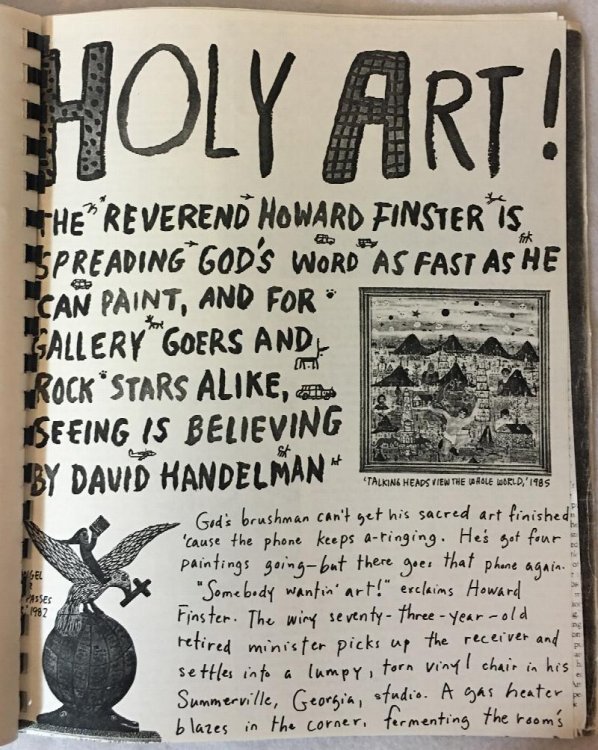 HOLY ART!
THE REVEREND HOWARD FINSTER IS
SPREADING GOD'S WORD AS FAST AS HE
CAN PAINT, AND FOR
GALLERY GOERS AND
ROCK STARS ALIKE,
SEEING IS BELIEVING
BY DAVID HANDELMAN
'TALKING HEADS VIEW THE WHOLE WORLD,' 1985
God's brushman can't get his sacred art finished
'cause the phone keeps a-ringing. He's got four
paintings going–but there goes that phone again.
"Somebody wantin' art!" exclaims Howard
Finster. The wiry seventy-three-year-old
retired minister picks up the receiver and
settles into a lumpy, torn vinyl chair in his
Summerville, Georgia, studio. A gas heater
blazes in the corner, fermenting the room's
1982